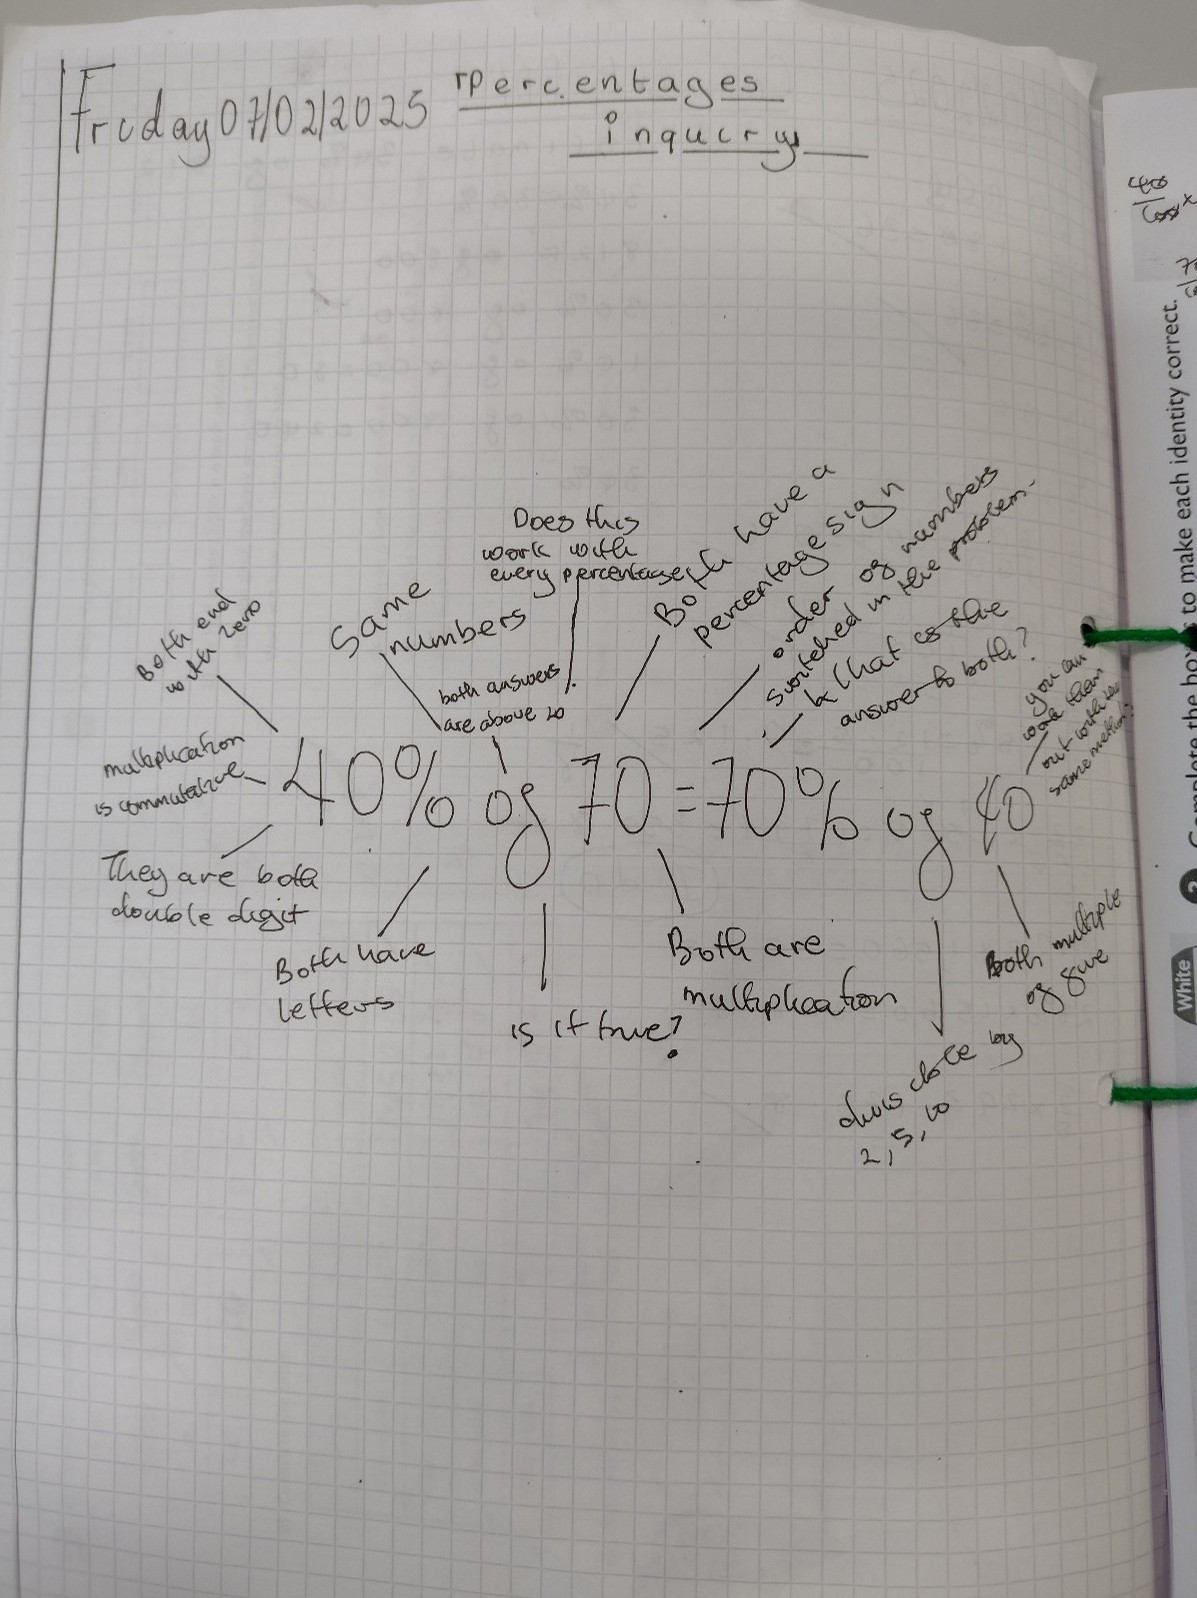 Friday 07/02/2025
Percentages
inquiry
Does this
work with
every percentage
Both have a
percentage sign
order of numbers
switched in the problem.
What is the
answer to both?
you can
work them
out with the
same method.
Both end
with zero
Same
numbers
both answers
are above 20
multiplication
is commutative
40% of 70 = 70% of 40
They are both
double digit
Both have
letters
is it true?
Both are
multiplication
divisible by
2, 5, 10
Both multiple
of five
to make each identity correct.
2 Complete the
White